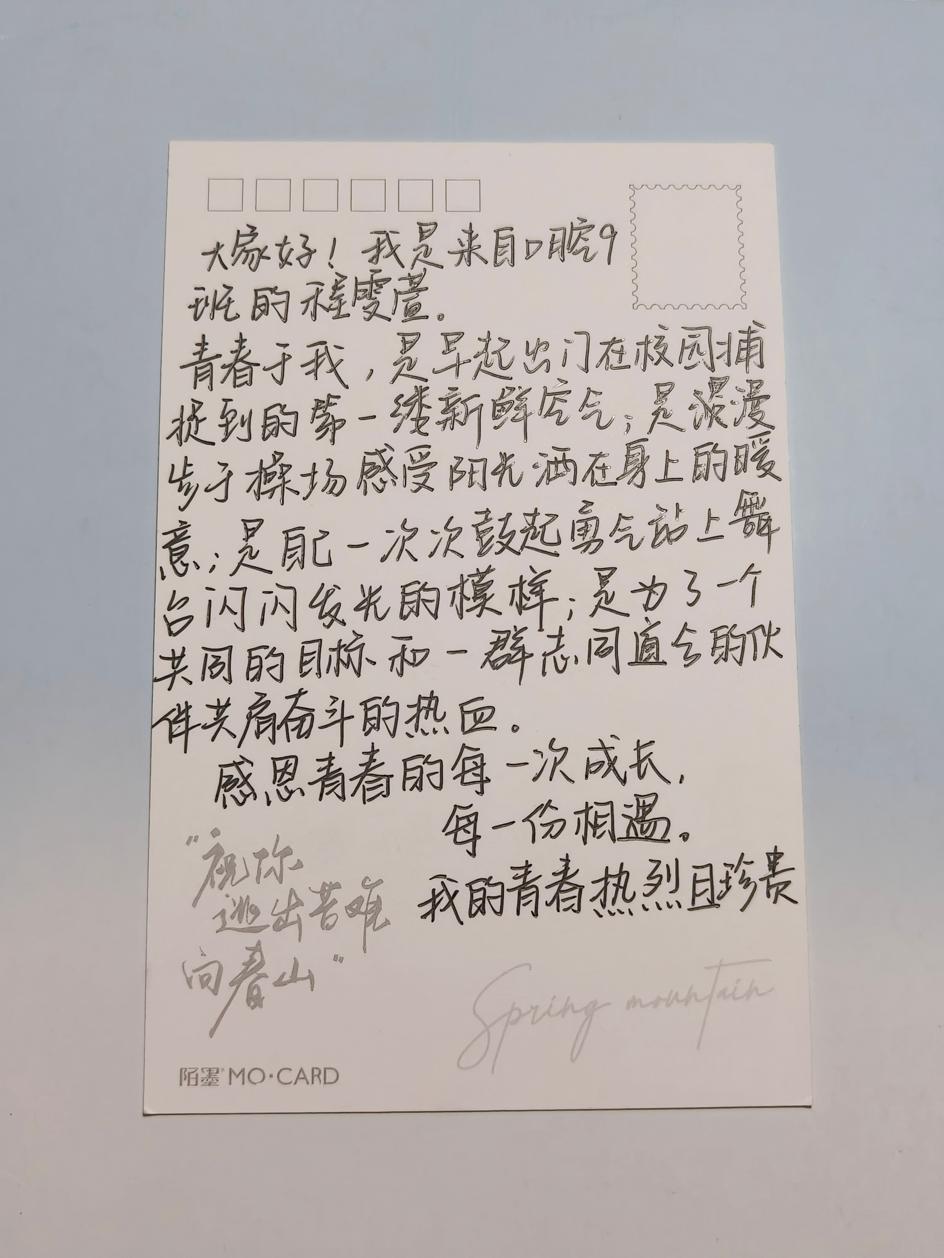 大家好！我是来自口腔9
班的程雯萱。
青春于我，是早起出门在校园捕
捉到的第一缕新鲜空气；是漫漫
步于操场感受阳光洒在身上的暖
意；是自己一次次鼓起勇气站上舞
台闪闪发光的模样；是为了一个
共同的目标和一群志同道合的伙
伴共肩奋斗的热血。
感恩青春的每一次成长，
每一份相遇。
我的青春热烈且珍贵
"祝你
逃出苦难
向春山"
Spring mountain
陌墨 MO·CARD